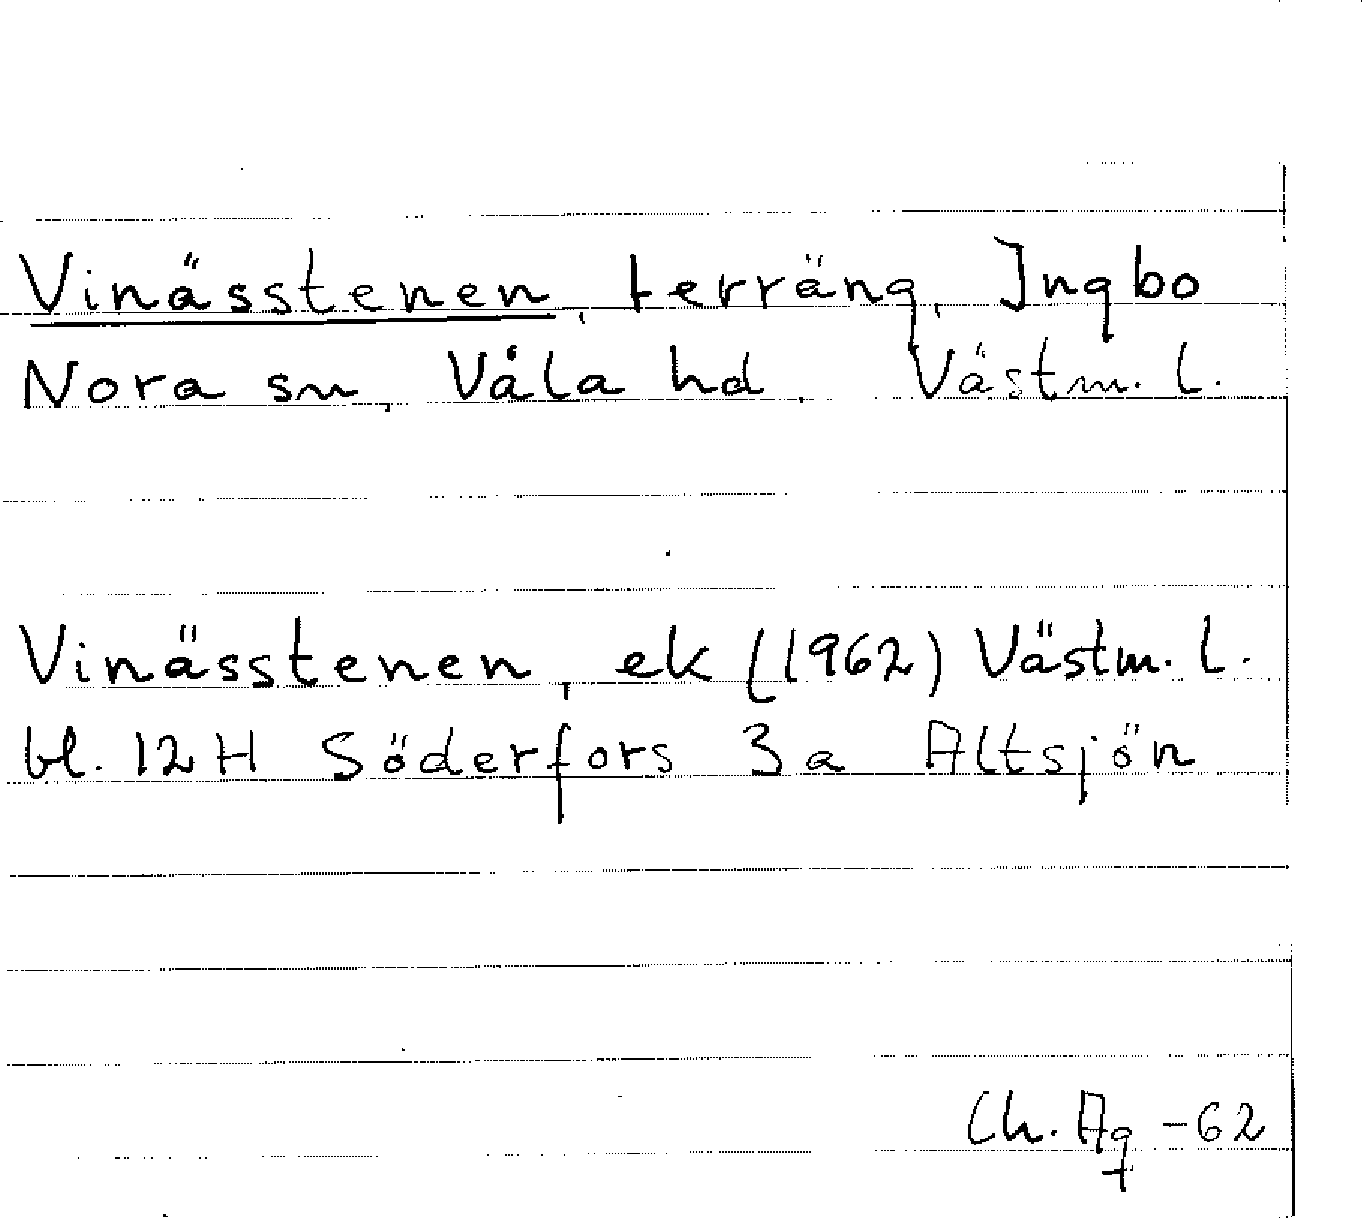 Vinässtenen, terräng, Ingbo
Nora sn, Våla hd, Västm. l.
Vinässtenen, ek (1962) Västm. l.
bl. 12H Söderfors 3a Altsjön
Ch. Ag -62